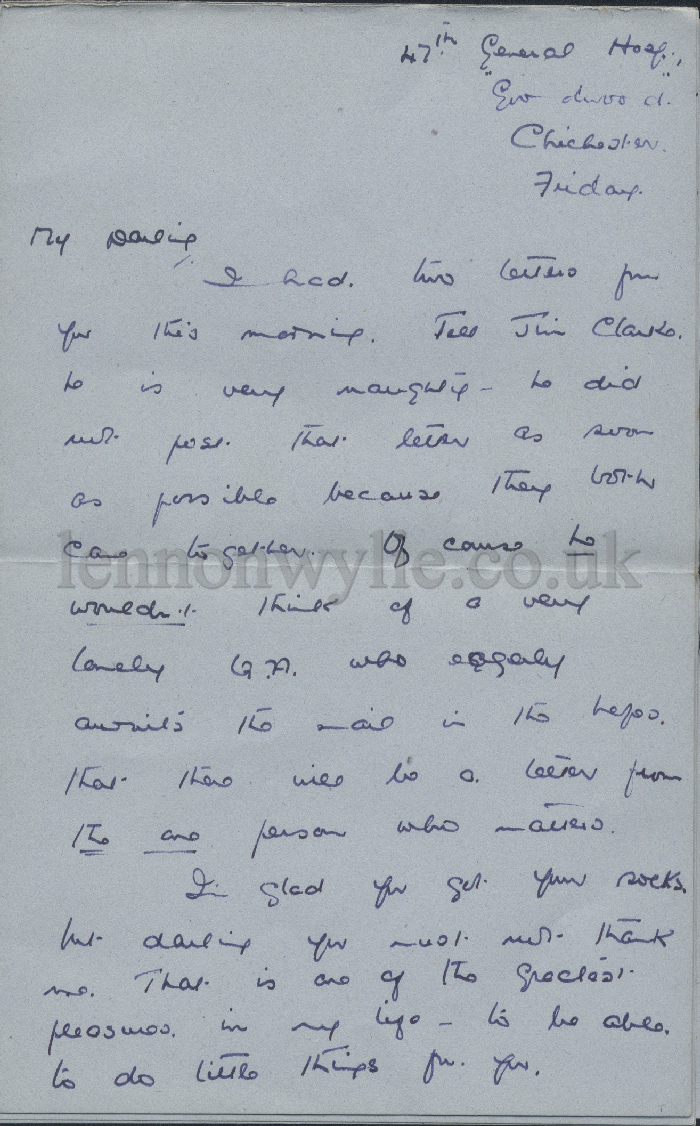 47th General Hosp.,
"Goodwood."
Chichester.
Friday.
My Darling,
I had. two letters from
you this morning. Tell Jim Clarke.
he is very naughty - he did
not post that letter as soon
as possible because they both
came together. Of course he
wouldn't think of a very
lonely Q.A. who eagerly
awaits the mail in the hopes.
that there will be a letter from
the one person who matters.
I'm glad you got your socks.
but darling you must not thank
me. That is one of the greatest
pleasures. in my life - to be able.
to do little things for you.
lennonwylie.co.uk